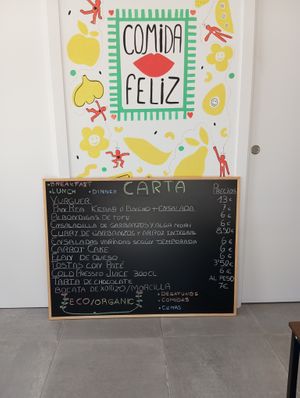 COMIDA
FELIZ
• BREAKFAST
• LUNCH • DINNER
CARTA
PRECIOS
YURGUER 13 €
PAN PITA KEBAB O PINCHO + ENSALADA 7 €
ALBONDIGAS DE TOFU 6 €
ENSALADILLA DE GARBANZOS Y ALGA NORI 6 €
CURRY DE GARBANZOS Y ARROZ INTEGRAL 8,50 €
ENSALADAS VARIADAS SEGÚN TEMPORADA 6 €
CARROT CAKE 6 €
FLAN DE QUESO 6 €
TOSTAS CON PATÉ 3'50 €
COLD PRESSED JUICE 300CL 6 €
TARTA DE CHOCOLATE AL PESO
BOCATA DE XORIZO/MORCILLA 7 €
ECO/ORGANIC
• DESAYUNOS
• COMIDAS
• CENAS